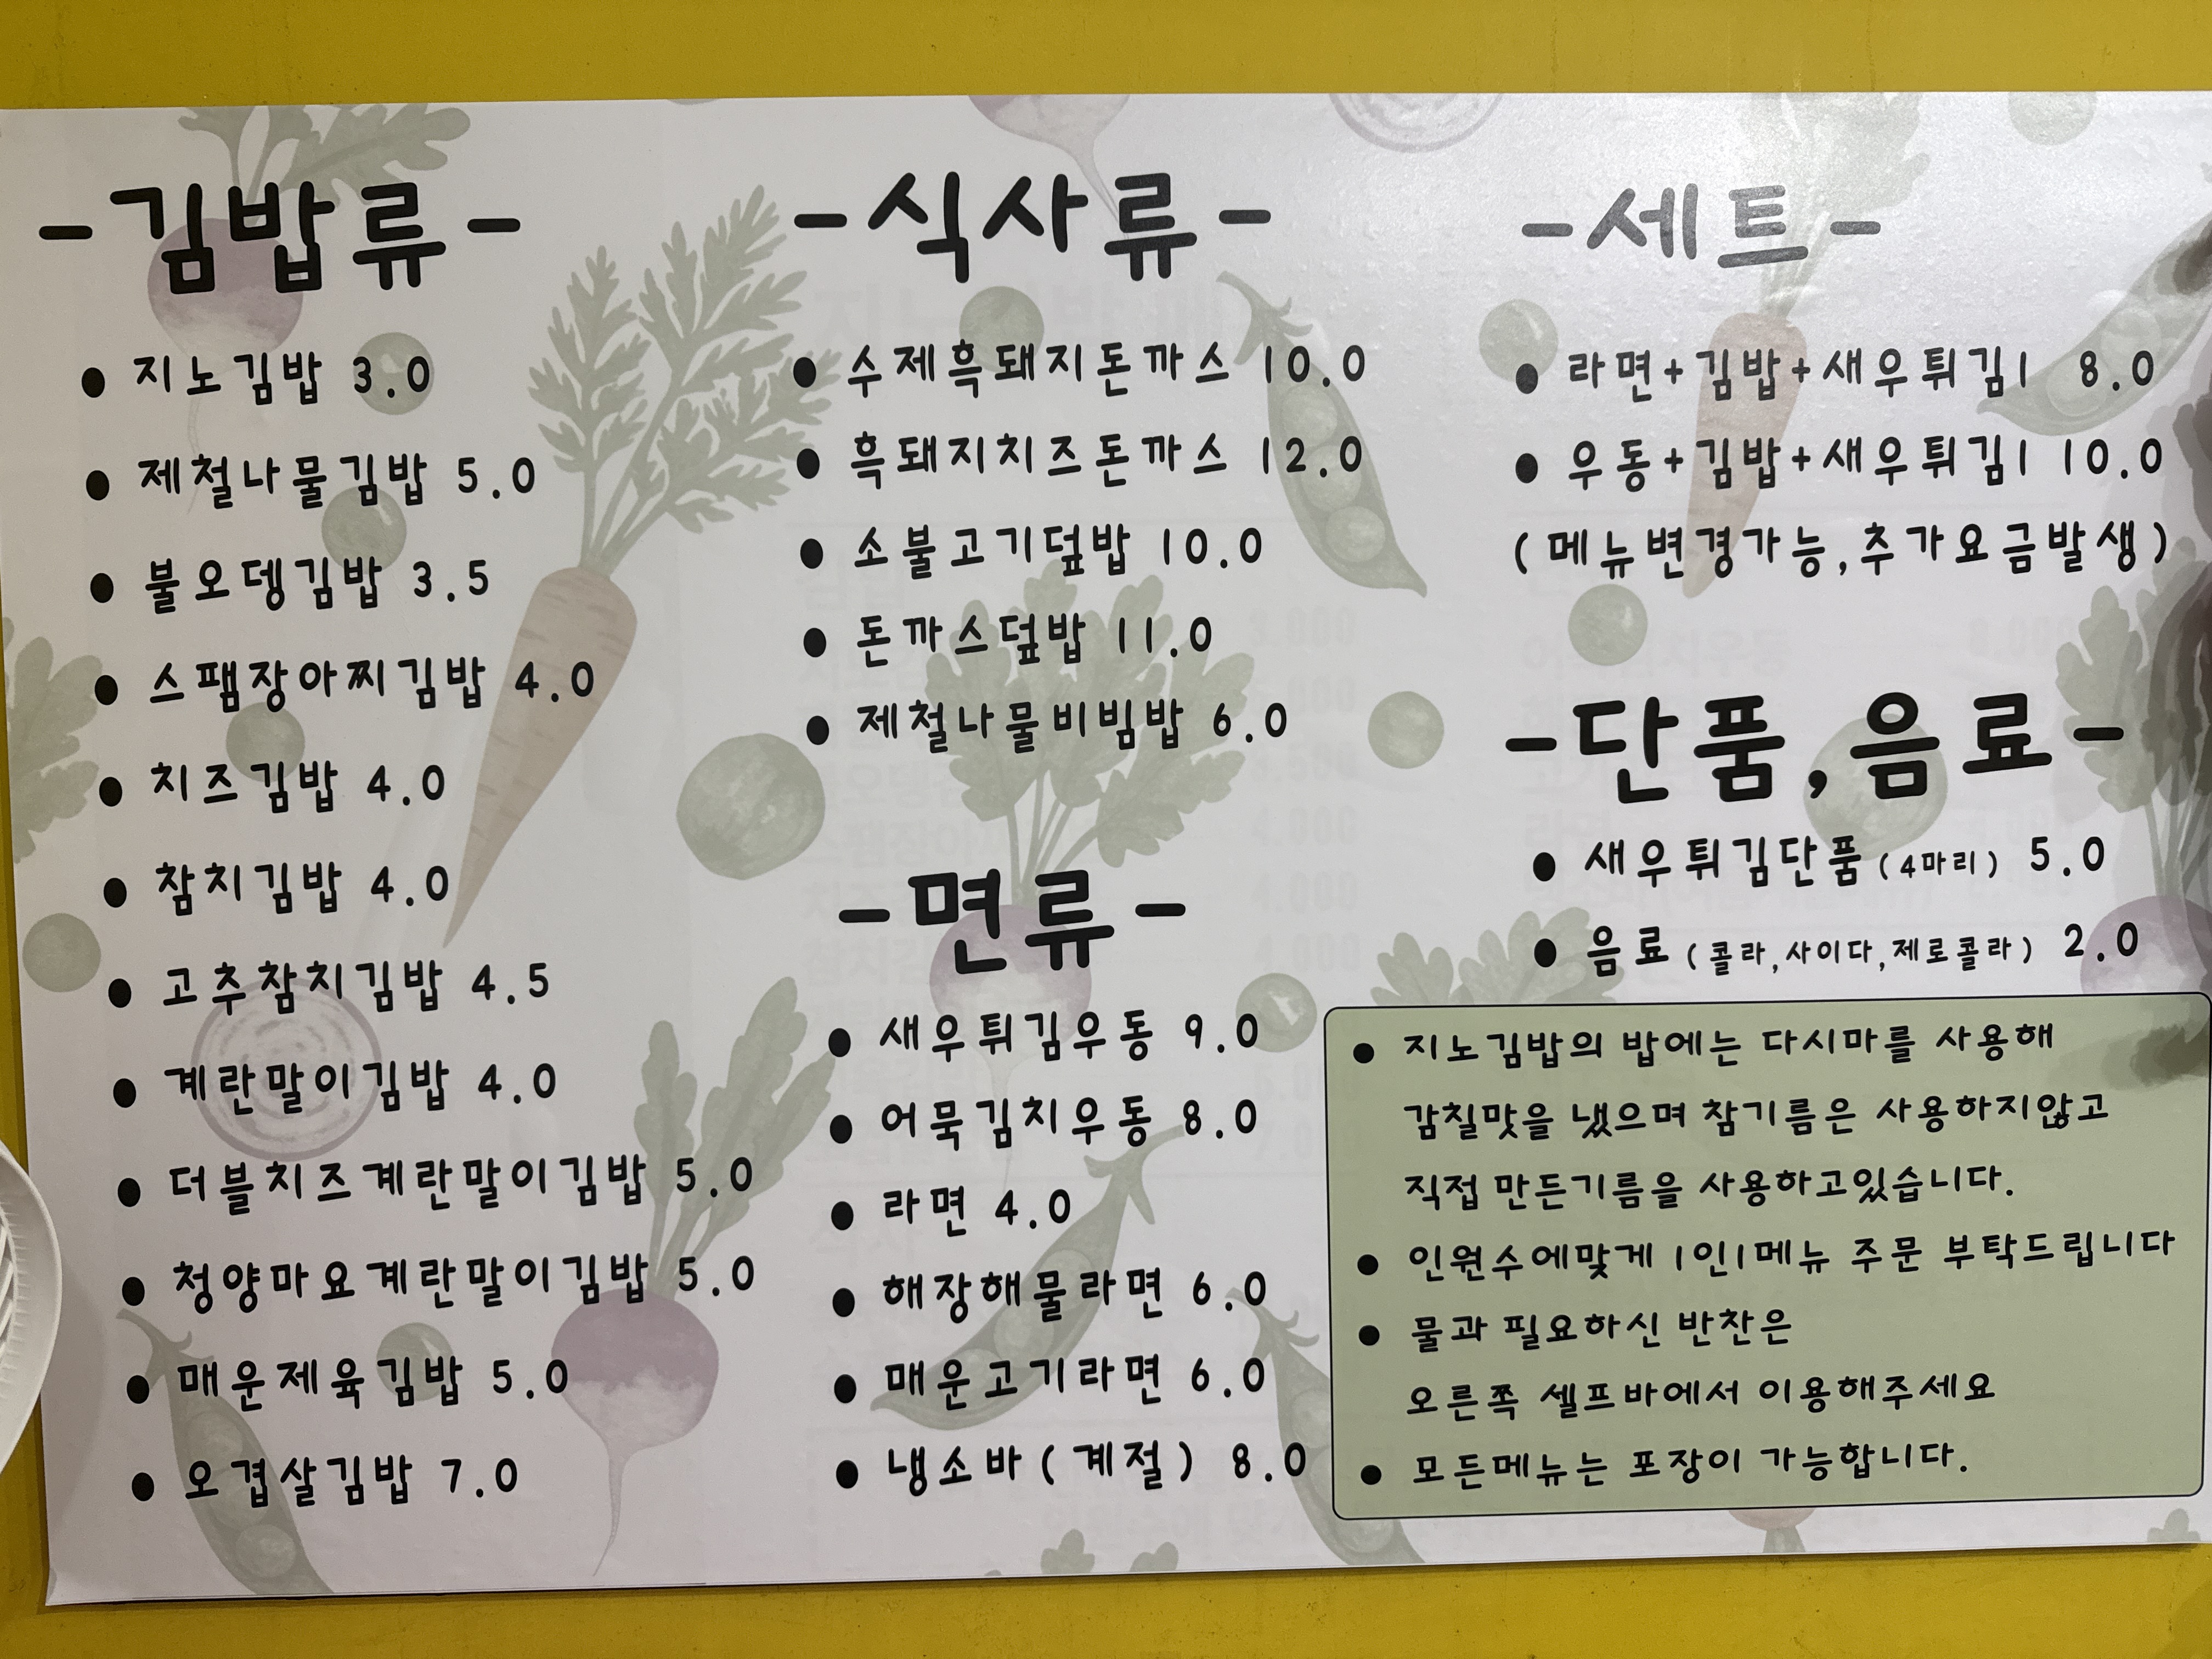 -김밥류-
● 지노김밥 3.0
● 제철나물김밥 5.0
● 불오뎅김밥 3.5
● 스팸장아찌김밥 4.0
● 치즈김밥 4.0
● 참치김밥 4.0
● 고추참치김밥 4.5
● 계란말이김밥 4.0
● 더블치즈계란말이김밥 5.0
● 청양마요계란말이김밥 5.0
● 매운제육김밥 5.0
● 오겹살김밥 7.0
-식사류-
● 수제흑돼지돈까스 10.0
● 흑돼지치즈돈까스 12.0
● 소불고기덮밥 10.0
● 돈까스덮밥 11.0
● 제철나물비빔밥 6.0
-면류-
● 새우튀김우동 9.0
● 어묵김치우동 8.0
● 라면 4.0
● 해장해물라면 6.0
● 매운고기라면 6.0
● 냉소바(계절) 8.0
-세트-
● 라면+김밥+새우튀김1 8.0
● 우동+김밥+새우튀김1 10.0
(메뉴변경가능,추가요금발생)
-단품,음료-
● 새우튀김단품(4마리) 5.0
● 음료(콜라,사이다,제로콜라) 2.0
● 지노김밥의 밥에는 다시마를 사용해
감칠맛을 냈으며 참기름은 사용하지않고
직접 만든기름을 사용하고있습니다.
● 인원수에맞게 1인1메뉴 주문 부탁드립니다
● 물과 필요하신 반찬은
오른쪽 셀프바에서 이용해주세요
● 모든메뉴는 포장이 가능합니다.